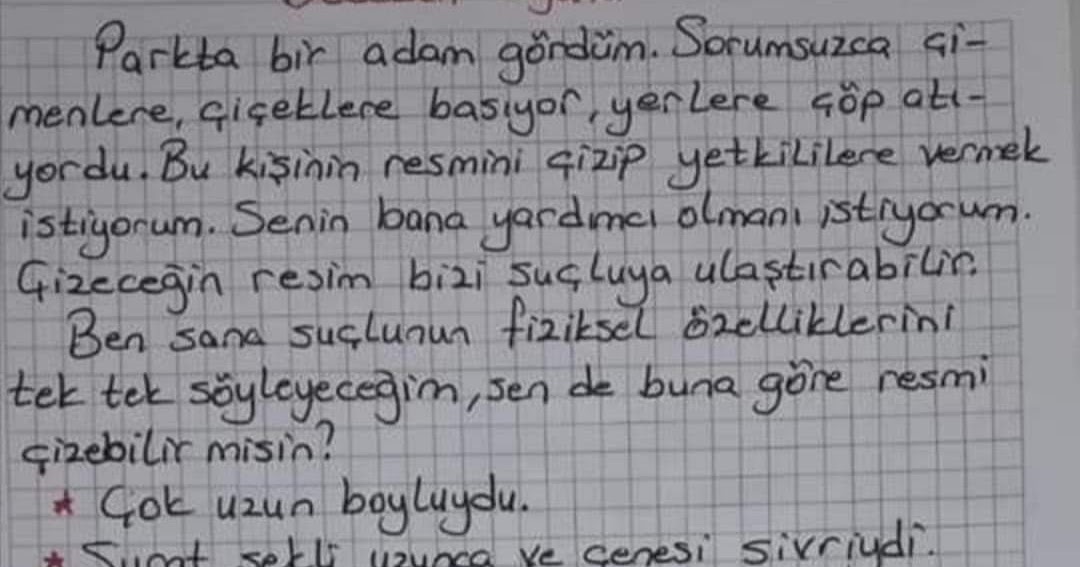 Parkta bir adam gördüm. Sorumsuzca çi-
menlere, çiçeklere basıyor, yerlere çöp atı-
yordu. Bu kişinin resmini çizip yetkililere vermek
istiyorum. Senin bana yardımcı olmanı istiyorum.
Çizeceğin resim bizi suçluya ulaştırabilir.
Ben sana suçlunun fiziksel özelliklerini
tek tek söyleyeceğim, sen de buna göre resmi
çizebilir misin?
* Çok uzun boyluydu.
* Surat şekli uzunca ve çenesi sivriydi.